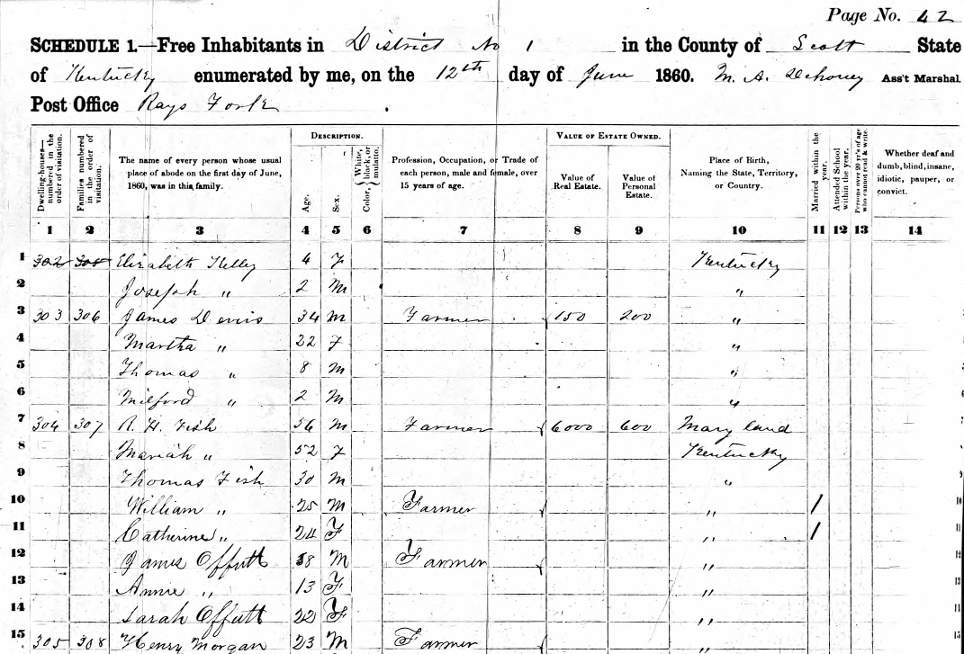 Page No. 42
SCHEDULE 1.—Free Inhabitants in District No 1 in the County of Scott State
of Kentucky enumerated by me, on the 12th day of June 1860. M. A. Dehoney Ass't Marshal.
Post Office Rays Fork
Dwelling-houses—numbered in the order of visitation.
Families numbered in the order of visitation.
The name of every person whose usual place of abode on the first day of June, 1860, was in this family.
DESCRIPTION.
Age.
Sex.
Color, { White, black, or mulatto.
Profession, Occupation, or Trade of each person, male and female, over 15 years of age.
VALUE OF ESTATE OWNED.
Value of Real Estate.
Value of Personal Estate.
Place of Birth, Naming the State, Territory, or Country.
Married within the year.
Attended School within the year.
Persons over 20 yr's of age who cannot read & write.
Whether deaf and dumb, blind, insane, idiotic, pauper, or convict.
1 2 3 4 5 6 7 8 9 10 11 12 13 14
1 302 Elizabeth Kelley 4 F Kentucky
2 Joseph " 2 M "
3 303 306 James Devis 34 M Farmer 150 200 "
4 Martha " 22 F "
5 Thomas " 8 M "
6 Milford " 2 M "
7 304 307 R. H. Fish 56 M Farmer 6000 600 Maryland
8 Mariah " 52 F Kentucky
9 Thomas Fish 30 M "
10 William " 25 M Farmer " /
11 Catherine " 24 F " /
12 James Offutt 18 M Farmer "
13 Annie " 13 F "
14 Sarah Offutt 22 F "
15 305 308 Henry Morgan 23 M Farmer "